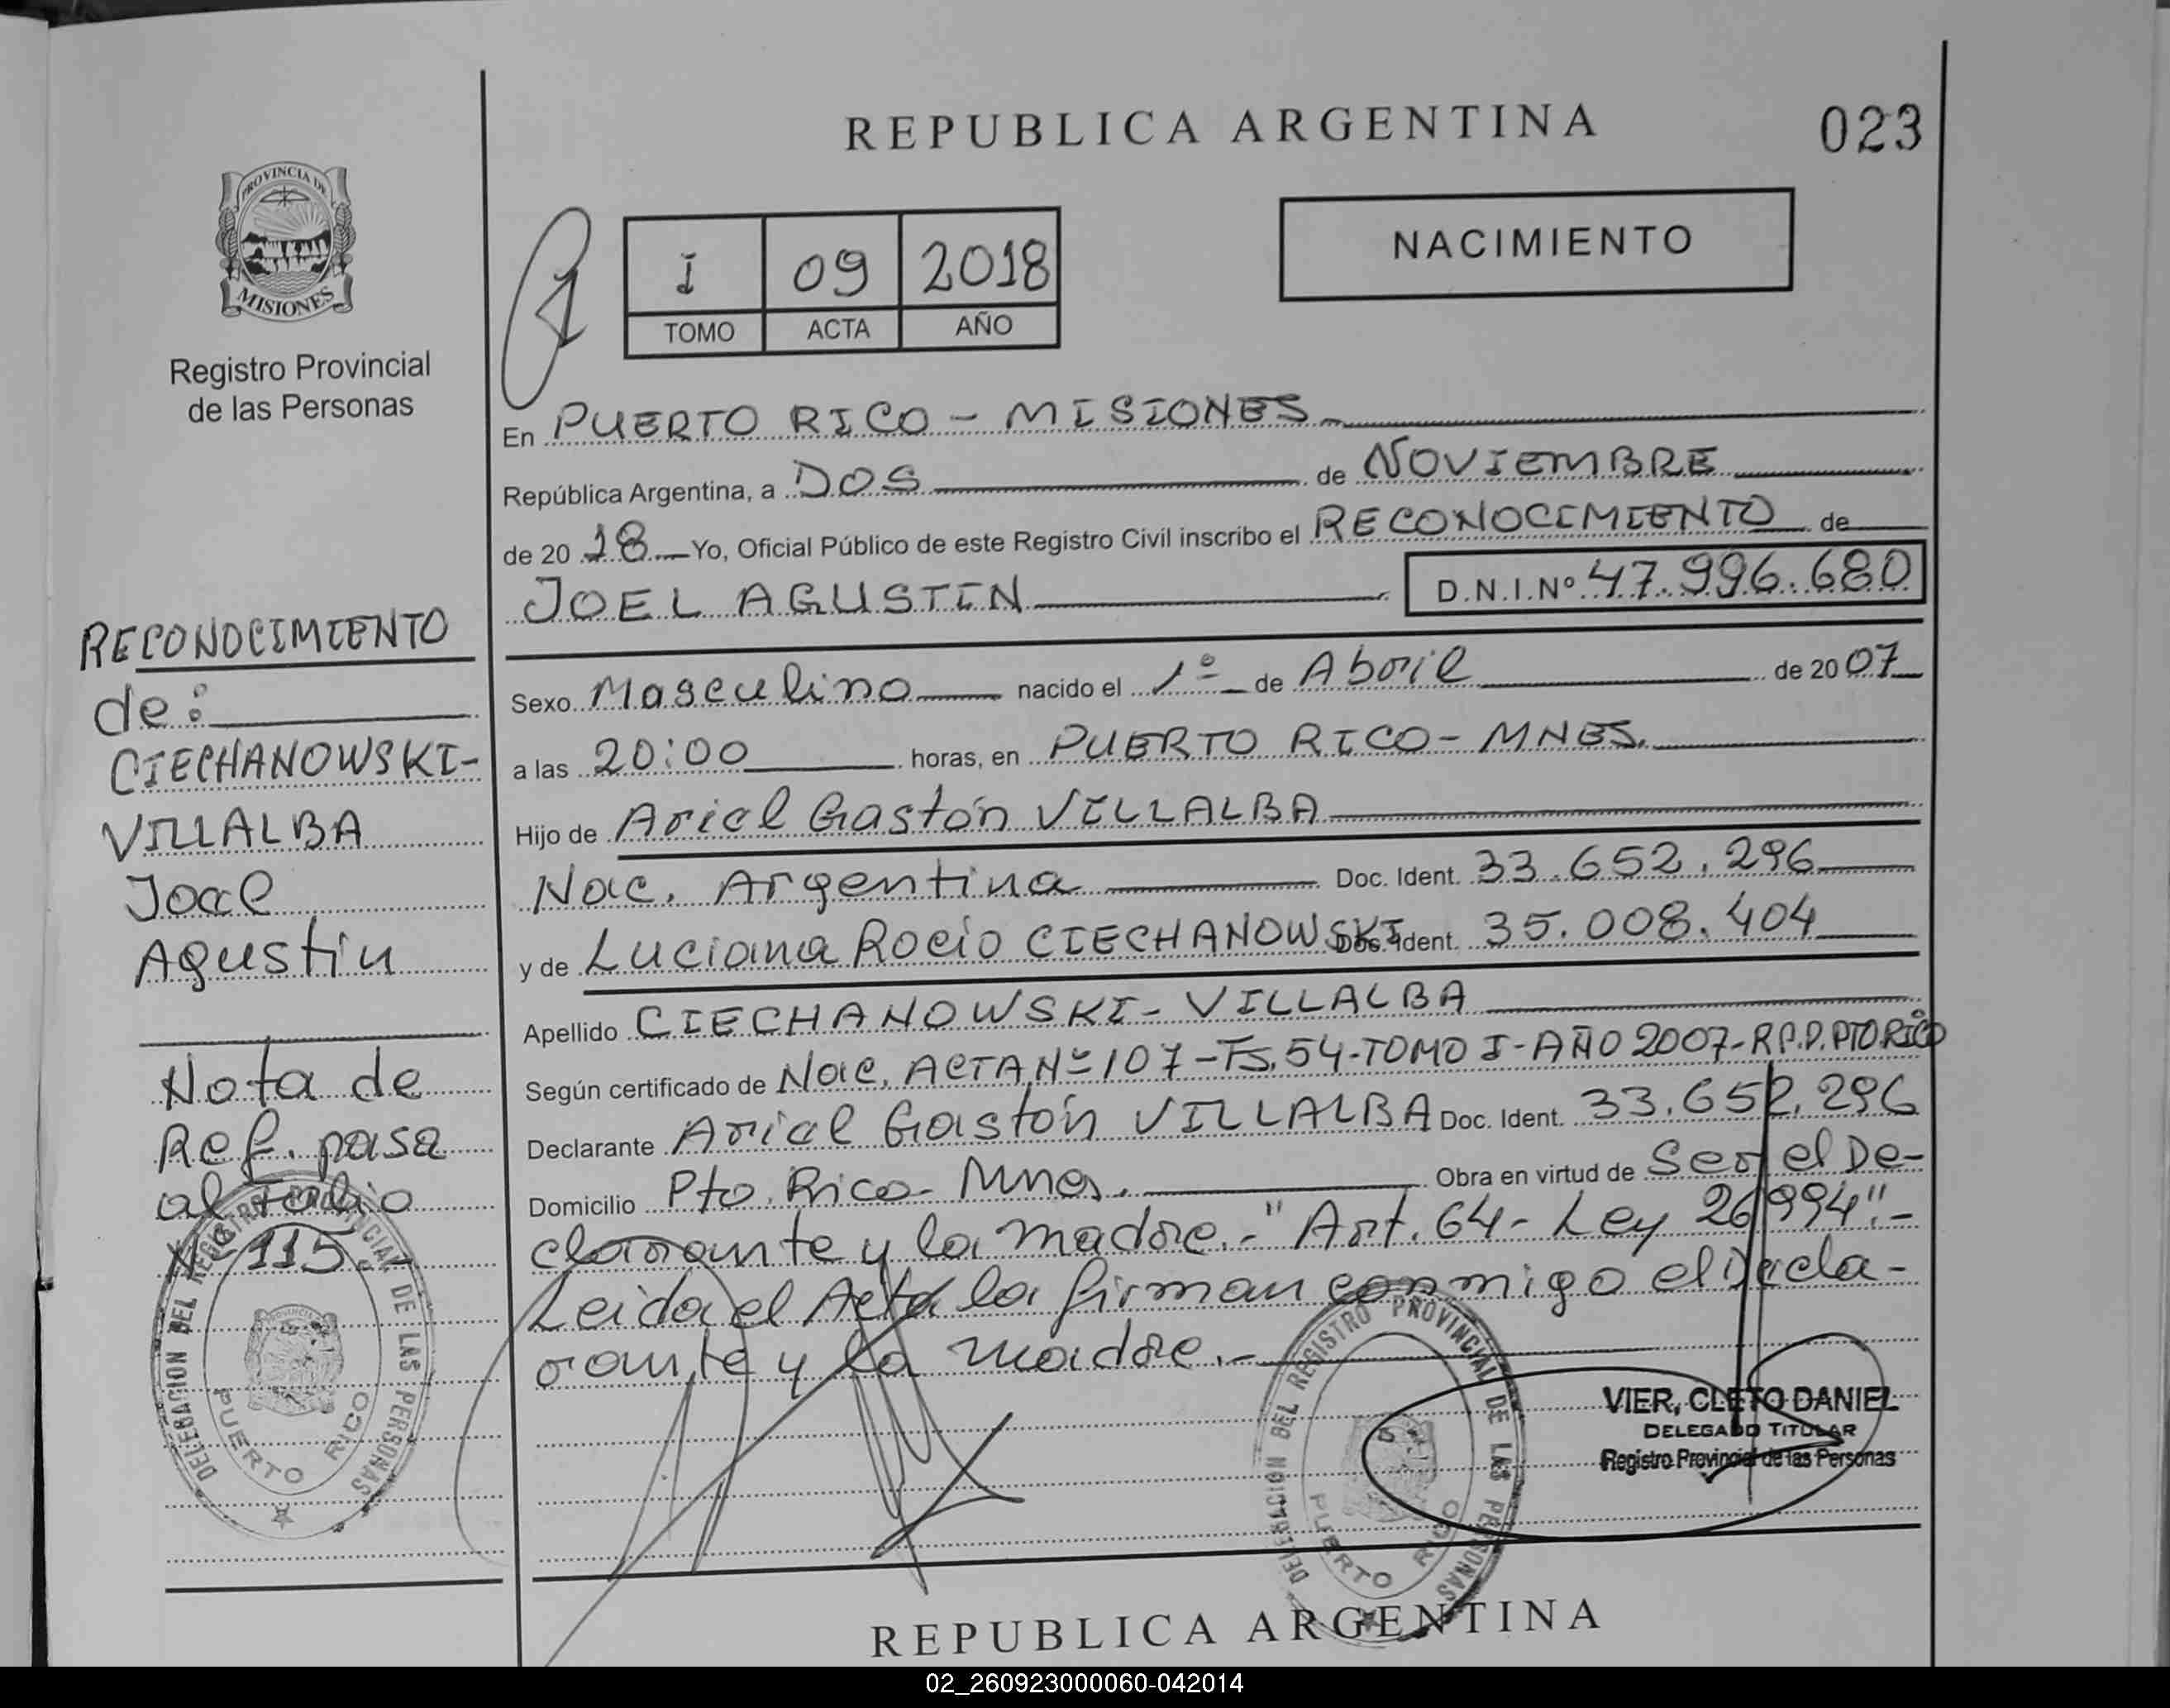 REPUBLICA ARGENTINA
023
PROVINCIA DE
MISIONES
Registro Provincial
de las Personas
I 09 2018
TOMO ACTA AÑO
NACIMIENTO
En PUERTO RICO - MISIONES
República Argentina, a DOS de NOVIEMBRE
de 20 18 Yo, Oficial Público de este Registro Civil inscribo el RECONOCIMIENTO de
JOEL AGUSTIN D.N.I.Nº 47.996.680
Sexo Masculino nacido el 1º de Abril de 2007
a las 20:00 horas, en PUERTO RICO - MNES.
Hijo de Ariel Gastón VILLALBA
Nac. Argentina Doc. Ident. 33.652.296
y de Luciana Rocio CIECHANOWSKI Doc. Ident. 35.008.404
Apellido CIECHANOWSKI - VILLALBA
Según certificado de Nac. ACTA Nº 107 - Fs. 54 - TOMO I - AÑO 2007 - R.P.P. PTO RICO
Declarante Ariel Gastón VILLALBA Doc. Ident. 33.652.296
Domicilio Pto. Rico - Mnes. Obra en virtud de Ser el De-
clarante y la madre.- "Art. 64 - Ley 26994".-
Leida el Acta la firman conmigo el Decla-
rante y la madre.-
RECONOCIMIENTO
de:
CIECHANOWSKI-
VILLALBA
Joel
Agustin
Nota de
Ref. pasa
al Folio
Nº 115
DELEGACION DEL REGISTRO PROVINCIAL DE LAS PERSONAS
PUERTO RICO
DELEGACION DEL REGISTRO PROVINCIAL DE LAS PERSONAS
PUERTO RICO
VIER, CLETO DANIEL
DELEGADO TITULAR
Registro Provincial de las Personas
REPUBLICA ARGENTINA
02_260923000060-042014